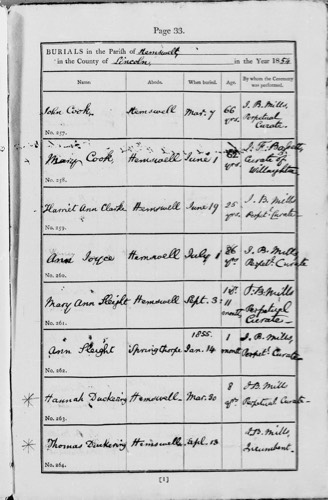 Page 33.
BURIALS in the Parish of Hemswell
in the County of Lincoln in the Year 1854
Name. Abode. When buried. Age. By whom the Ceremony was performed.
John Cook, Hemswell Mar. 7 66 yrs. J. B. Mills, Perpetual Curate.
No. 257.
Mary Cook, Hemswell June 1 62 yrs. J. F. Curate of Willoughton
No. 258.
Harriet Ann Clarke Hemswell June 19 25 yrs. J. B. Mills Perpetl. Curate
No. 259.
Ann Joyce Hemswell July 1 yrs. J. B. Mills Perpetl. Curate
No. 260.
Mary Ann Sleight Hemswell Sept. 3: 11 months J. B. Mills Perpetual Curate
No. 261.
1855.
Ann Sleight Springthorpe Jan. 14 1 month J. B. Mills, Perpetl. Curate
No. 262.
Hannah Duckering Hemswell Mar. 20 8 yrs. J. B. Mills Perpetual Curate
No. 263.
Thomas Duckering Hemswell Apl. 13 J. B. Mills, Incumbent.
No. 264.
[1]